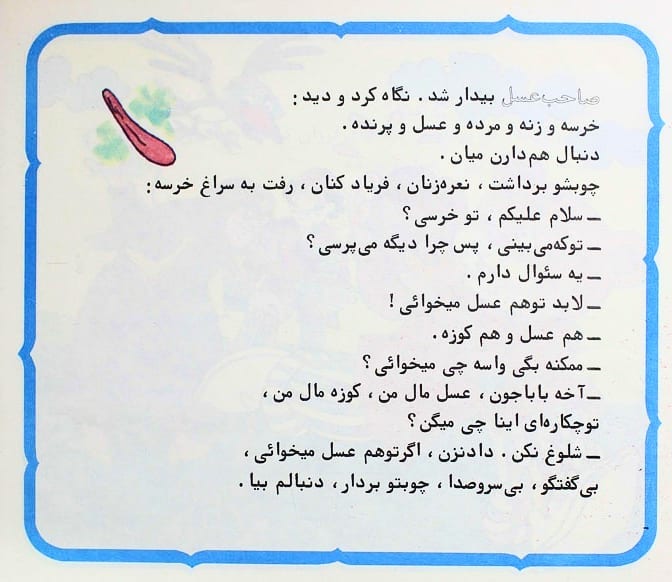 صاحب‌عسل بیدار شد . نگاه کرد و دید :
خرسه و زنه و مرده و عسل و پرنده .
دنبال هم‌دارن میان .
چوبشو برداشت ، نعره‌زنان ، فریاد کنان ، رفت به سراغ خرسه :
ــ سلام علیکم ، تو خرسی ؟
ــ توکه‌می‌بینی ، پس چرا دیگه می‌پرسی ؟
ــ یه سئوال دارم .
ــ لابد توهم عسل میخوائی !
ــ هم عسل و هم کوزه .
ــ ممکنه بگی واسه چی میخوائی ؟
ــ آخه باباجون ، عسل مال من ، کوزه مال من ،
توچکاره‌ای اینا چی میگن ؟
ــ شلوغ نکن . دادنزن ، اگرتوهم عسل میخوائی ،
بی‌گفتگو ، بی‌سروصدا ، چوبتو بردار ، دنبالم بیا .